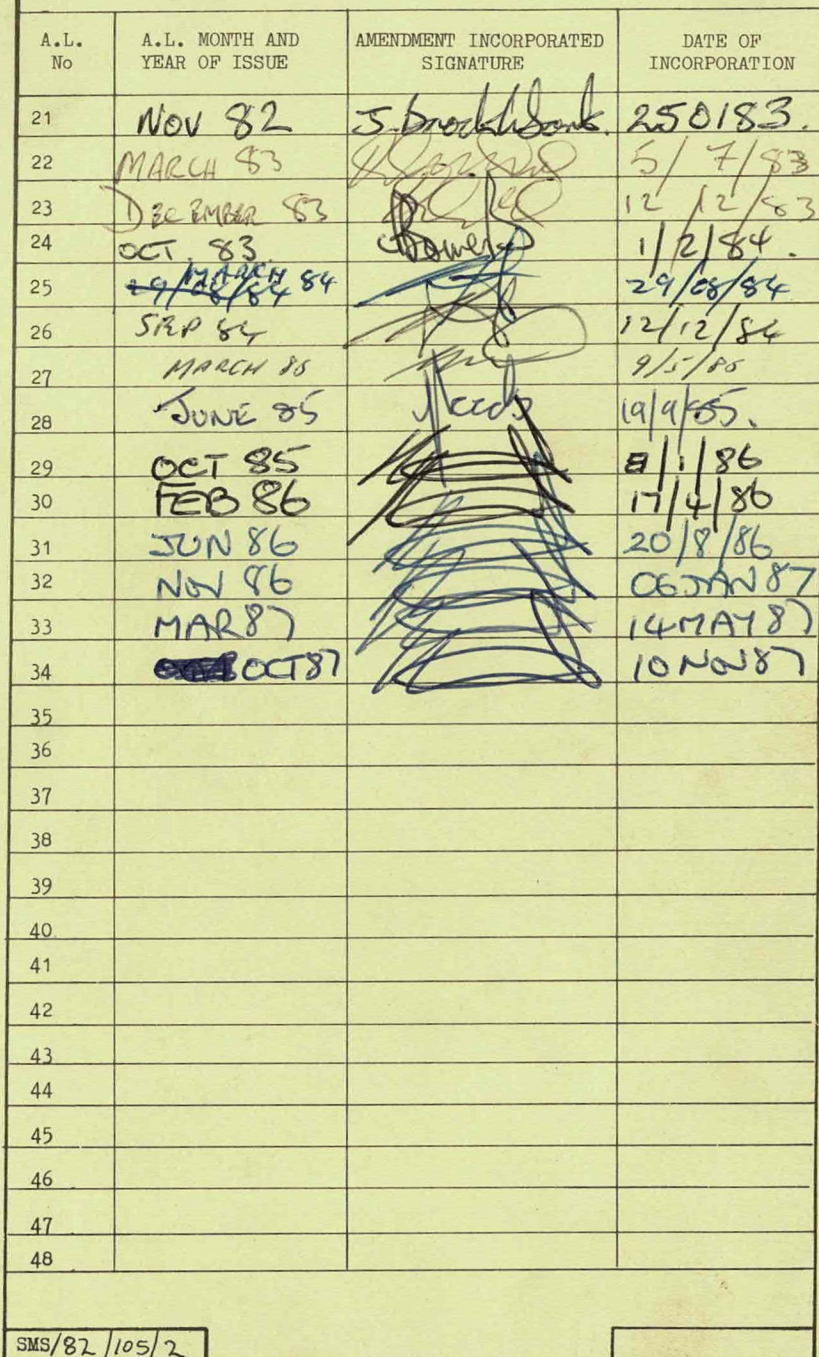 A.L. No A.L. MONTH AND YEAR OF ISSUE AMENDMENT INCORPORATED SIGNATURE DATE OF INCORPORATION
21 NOV 82 J. Brockbank. 250183.
22 MARCH 83 5/7/83
23 DECEMBER 83 12/12/83
24 OCT 83 1/2/84.
25 29/08/84 MARCH 84 29/08/84
26 SEP 84 12/12/84
27 MARCH 85 9/5/85
28 JUNE 85 19/9/85.
29 OCT 85 8/1/86
30 FEB 86 17/4/86
31 JUN 86 20/8/86
32 NOV 86 06 JAN 87
33 MAR 87 14 MAY 87
34 OCT 87 10 NOV 87
35
36
37
38
39
40
41
42
43
44
45
46
47
48
SMS/82/105/2